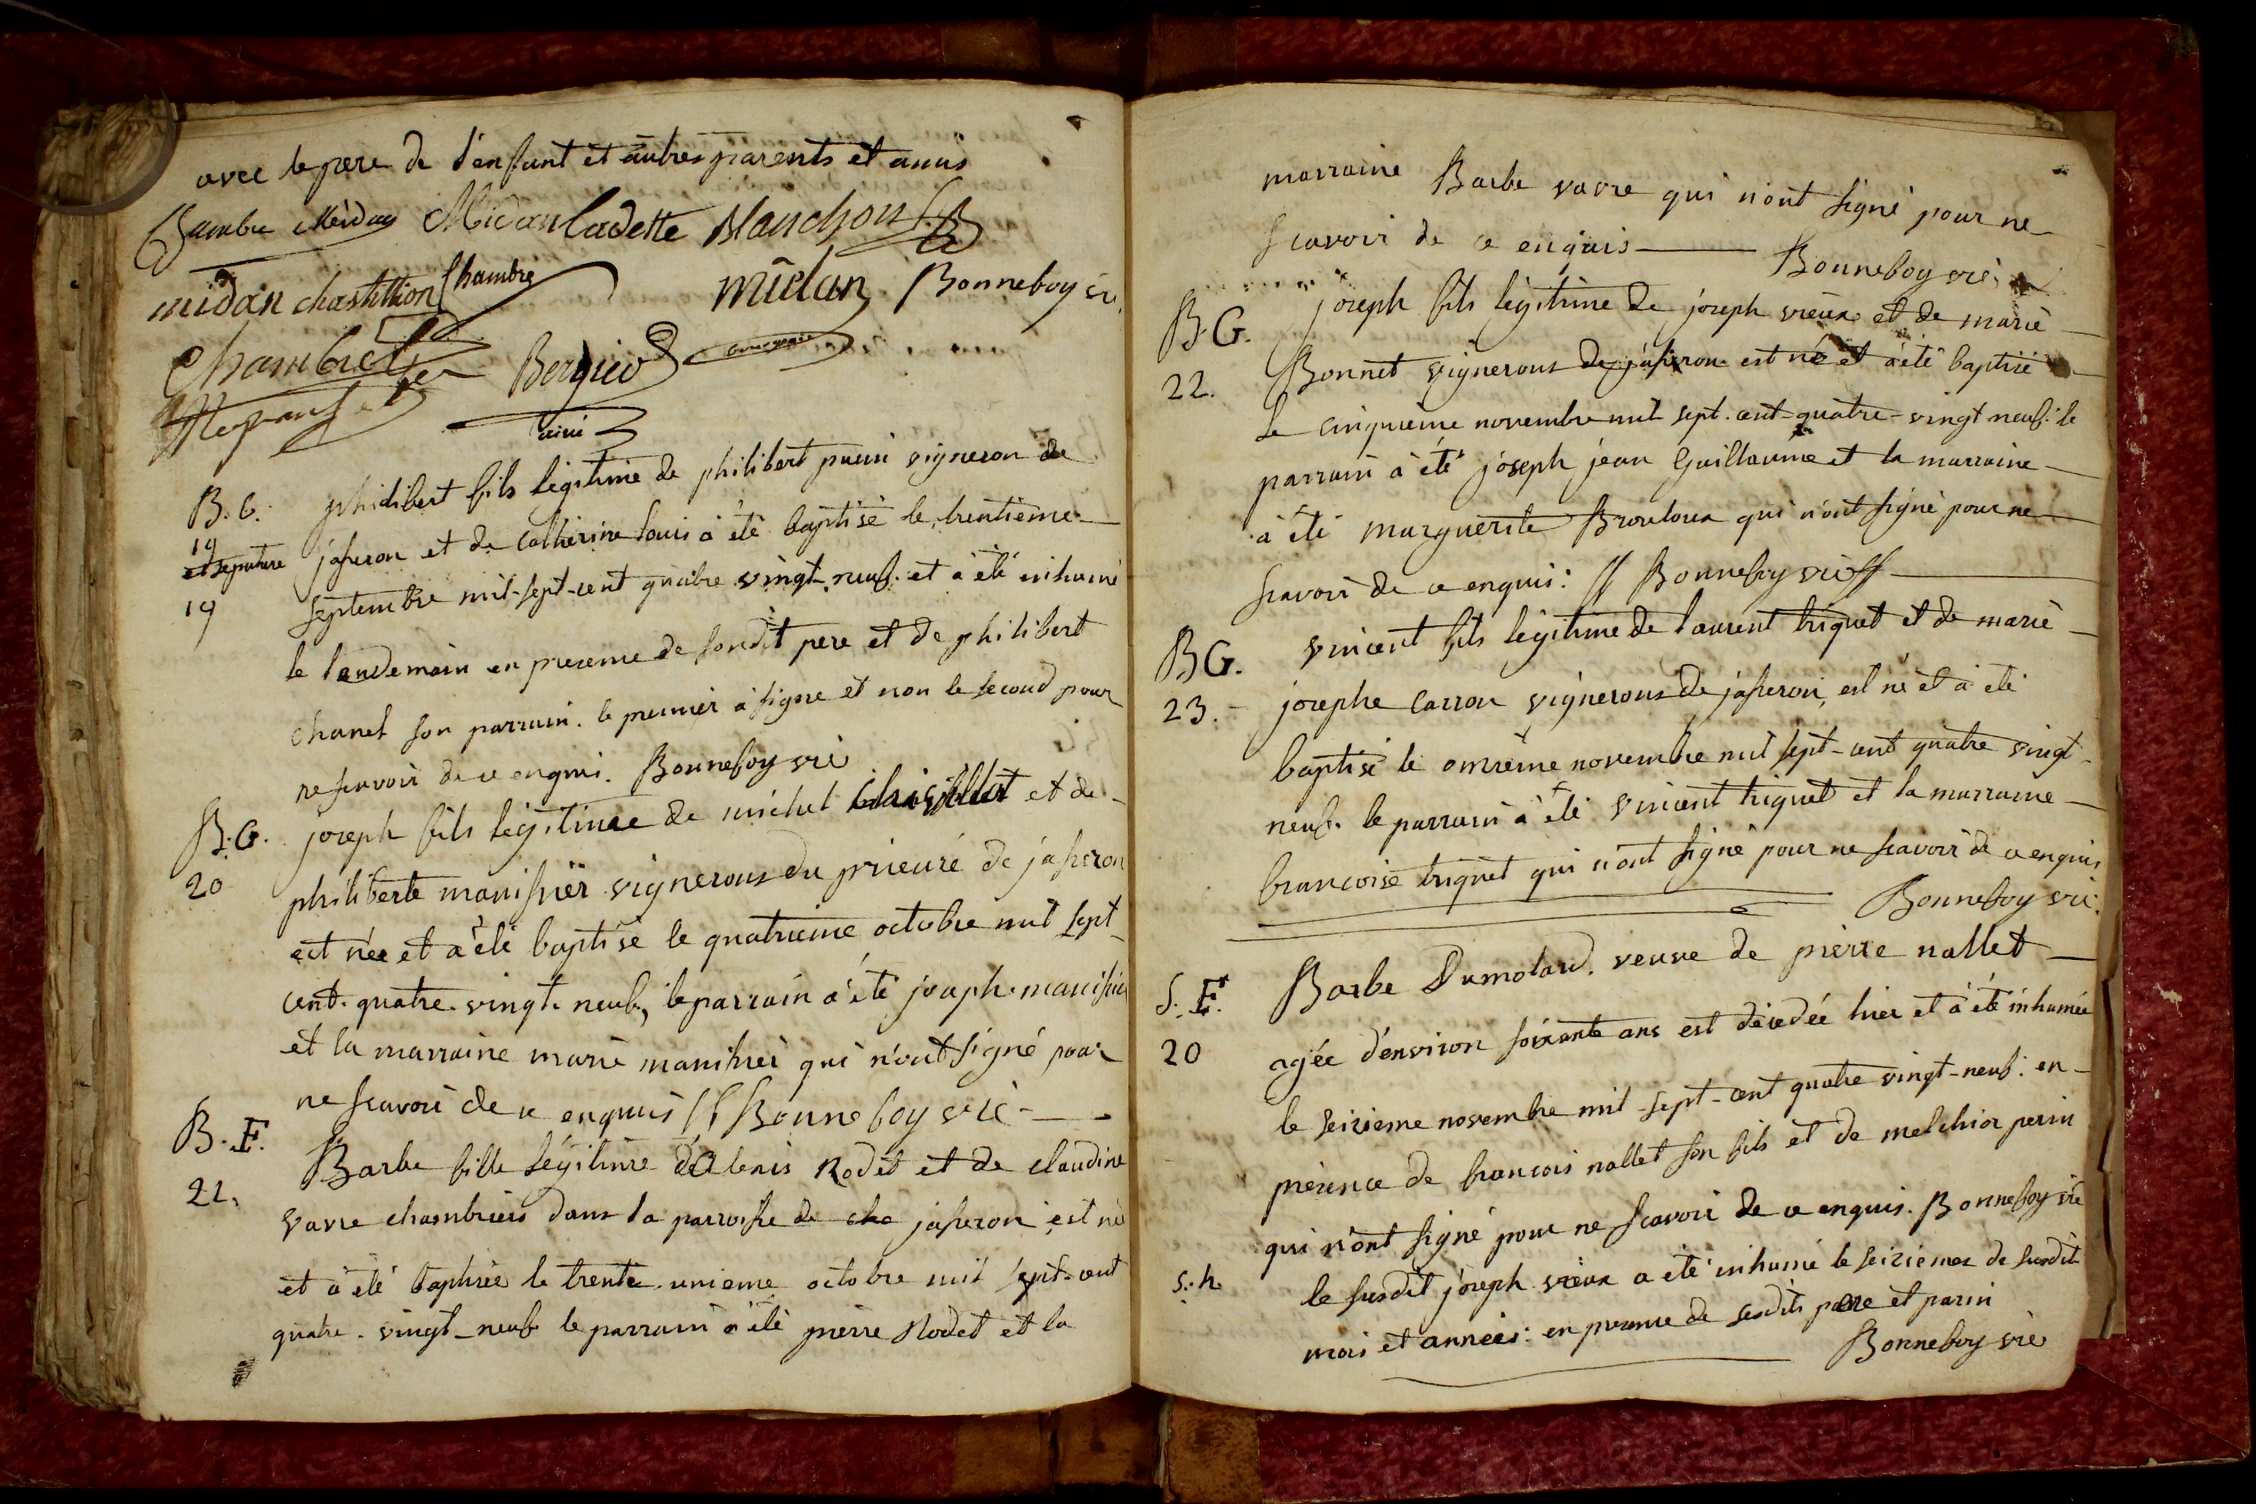 avec le pere de l'enfant et autres parents et amis
Chambre Midan Midan Cadette Blanchon
midan chastillion Chambre midan Bonnefoy vic
Chambre Bergier
B. G. philibert fils legitime de philibert puvin vigneron de
19
et sepulture jasseron et de Catherine Louis à été baptisé le trentieme
19 septembre mil-sept-cent quatre vingt-neuf. et à été inhumé
le landemain en presence de sondit pere et de philibert
chanel son parrain. le premier à signe et non le second pour
ne scavoir de ce enquis. Bonnefoy vic
B. G. joseph fils legitime de michel et de
20 philiberte manissier vignerons du prieuré de jasseron
est née et a été baptisé le quatrieme octobre mil sept
cent. quatre. vingt. neuf, le parrain a été joseph manissier
et la marraine marie manissier qui n'ont signé pour
ne scavoir de ce enquis // Bonnefoy vic
B. F. Barbe fille légitime de denis Rodet et de claudine
21. vavre chambriers dans la parroisse de che jasseron est née
et à été baptisée le trente. unieme octobre mil sept-cent
quatre. vingt-neuf le parrain à été pierre Rodet et la
marraine Barbe vavre qui n'ont signé pour ne
scavoir de ce enquis Bonnefoy vic
B. G. joseph fils légitime de joseph vieux et de marie
22. Bonnet vignerons de jasseron est né et à été baptisé
le cinquieme novembre mil sept. cent-quatre-vingt neuf. le
parrain à été joseph jean Guillaume et la marraine
à été marguerite Brouloux qui n'ont signé pour ne
scavoir de ce enquis: // Bonnefoy vic //
BG. vincent fils légitime de laurent triquet et de marie
23. josephe Carron vignerons de jasseron, est né et à été
baptisé le onzième novembre mil sept-cent quatre vingt
neuf. le parrain à été vincent triquet et la marraine
francoise triquet qui n'ont signé pour ne scavoir de ce enquis
Bonnefoy vic.
S. F. Barbe Dumolard. veuve de pierre nallet
20 agée d'environ soixante ans est décedée hier et à été inhumée
le seizieme novembre mil-sept-cent quatre vingt-neuf: en
présence de francois nallet son fils et de melchior perin
qui n'ont signé pour ne scavoir de ce enquis. Bonnefoy vic
S. h. le susdit joseph vieux a été inhumé le seiziemes de susdit
mois et années: en presence de sesdits pere et parin
Bonnefoy vic